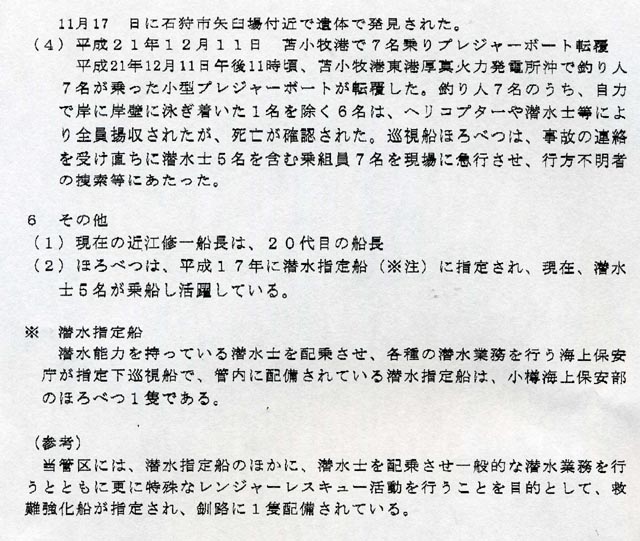 11月17　日に石狩市矢臼場付近で遺体で発見された。
（４）平成２１年１２月１１日　苫小牧港で７名乗りプレジャーボート転覆
平成21年12月11日午後11時頃、苫小牧港東港厚真火力発電所沖で釣り人
７名が乗った小型プレジャーボートが転覆した。釣り人７名のうち、自力
で岸に岸壁に泳ぎ着いた１名を除く６名は、ヘリコプターや潜水士等によ
り全員揚収されたが、死亡が確認された。巡視船ほろべつは、事故の連絡
を受け直ちに潜水士５名を含む乗組員７名を現場に急行させ、行方不明者
の捜索等にあたった。
６　その他
（１）現在の近江修一船長は、２０代目の船長
（２）ほろべつは、平成１７年に潜水指定船（※注）に指定され、現在、潜水
士５名が乗船し活躍している。
※　潜水指定船
潜水能力を持っている潜水士を配乗させ、各種の潜水業務を行う海上保安
庁が指定下巡視船で、管内に配備されている潜水指定船は、小樽海上保安部
のほろべつ１隻である。
（参考）
当管区には、潜水指定船のほかに、潜水士を配乗させ一般的な潜水業務を行
うとともに更に特殊なレンジャーレスキュー活動を行うことを目的として、救
難強化船が指定され、釧路に１隻配備されている。